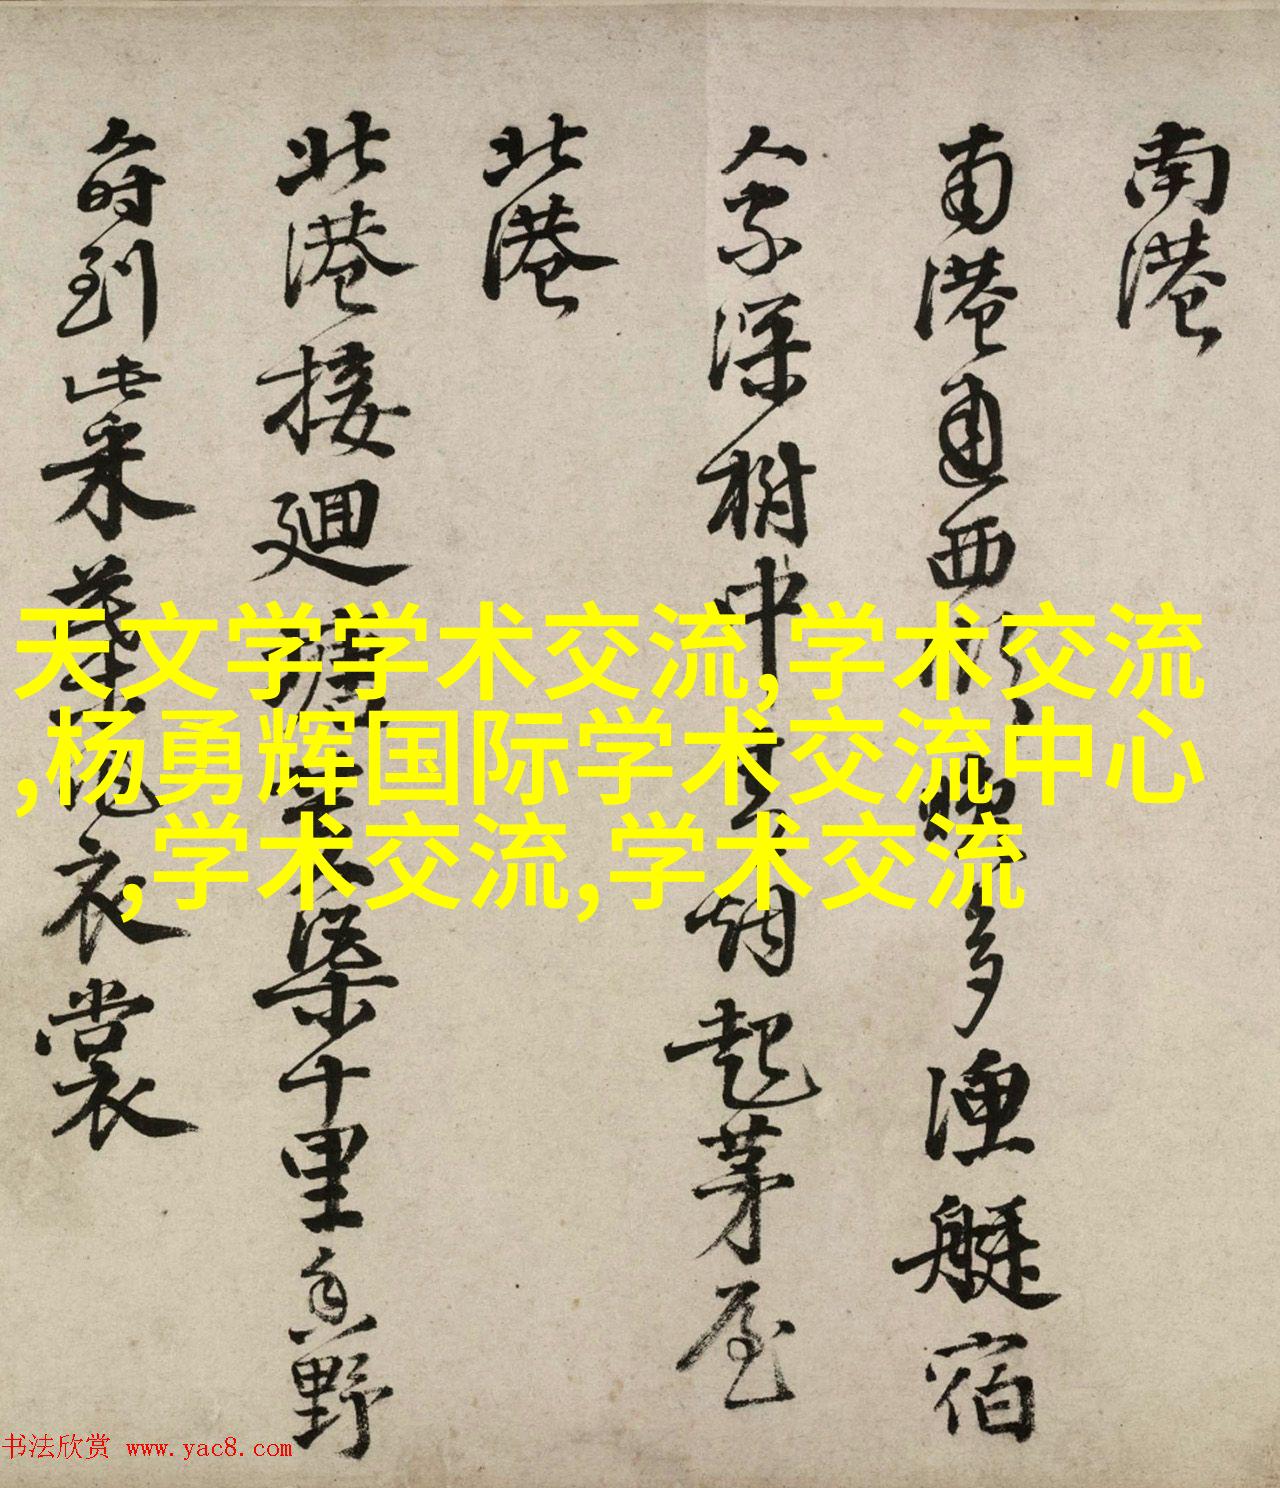 南港
南港通西晚多漁艇宿
人家深樹中烟起茅屋
北港
北港接廻塘渠十里香野
人時到此采衣裳
天文学学术交流,学术交流
,杨勇辉国际学术交流中心
,学术交流,学术交流
书法欣赏 www.yac8.com